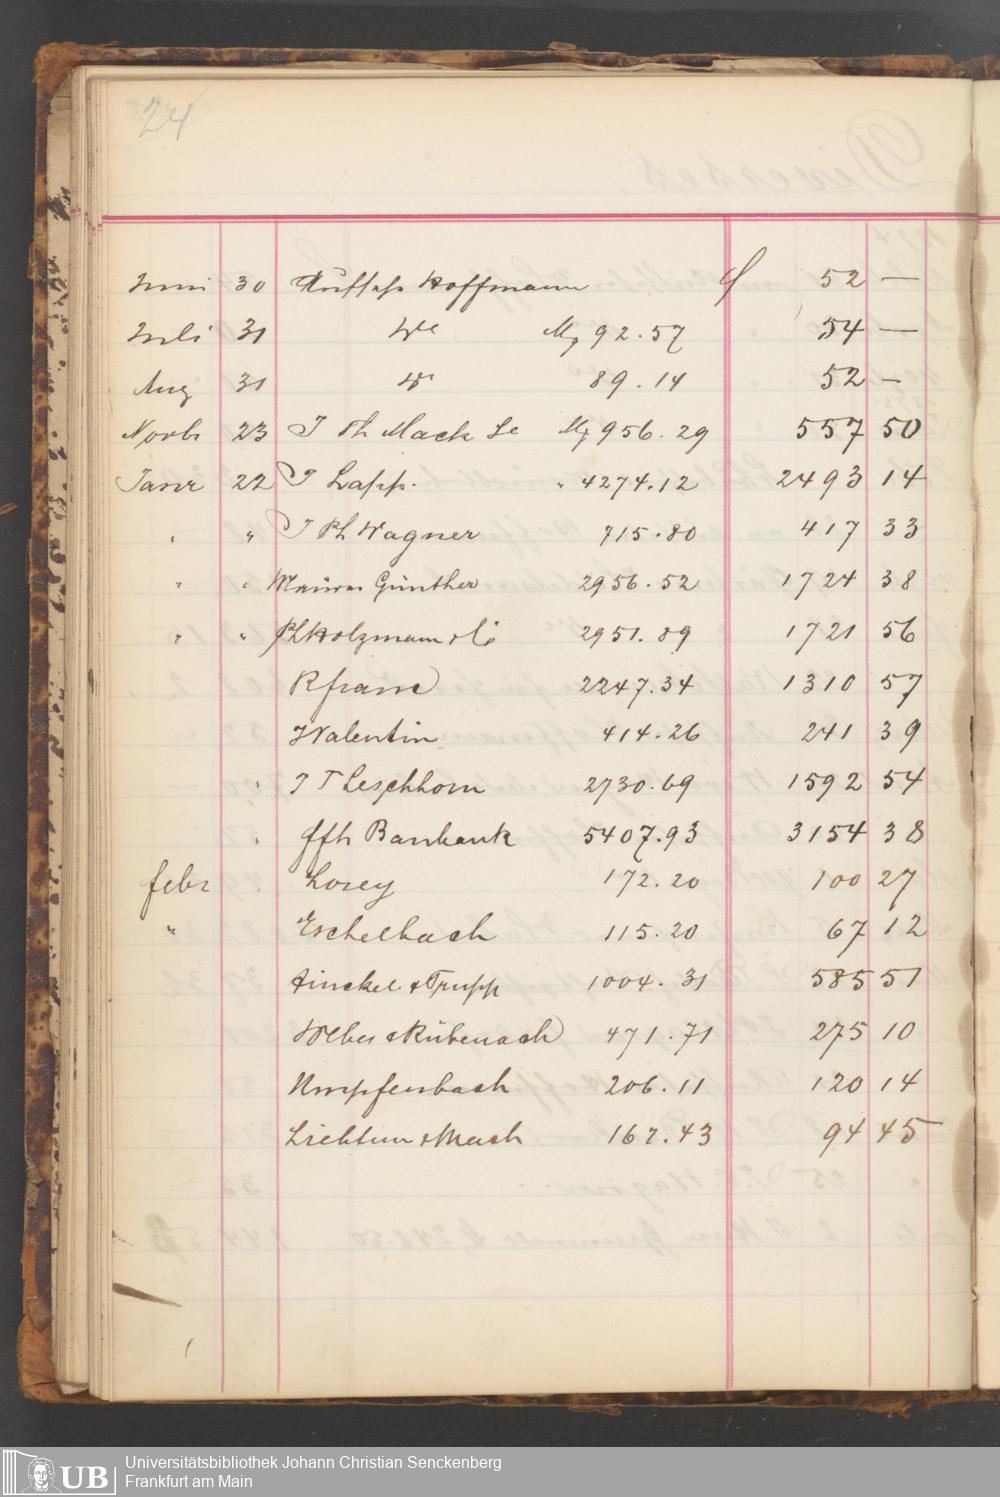 24
Juni 30 Hoffmann f 52 —
Juli 31 Do Mk 92.57 54 —
Aug 31 Do 89.14 52 —
Novb 23 J Ph Mack Mk 956.29 557 50
Janr 22 J Lapp. " 4274.12 2493 14
" " J Ph Wagner 715.80 417 33
" " Günther 2956.52 1724 38
" " Ph Holzmann & Co 2951.89 1721 56
2247.34 1310 57
Valentin 414.26 241 39
" J J Leschhorn 2730.69 1592 54
" Ffth Baubank 5407.93 3154 38
Febr Losey 172.20 100 27
" Eschelbach 115.20 67 12
& Trupp 1004.31 585 51
Weber & Rübenach 471.71 275 10
Umpfenbach 206.11 120 14
& Mack 167.43 94 45
UB
Universitätsbibliothek Johann Christian Senckenberg
Frankfurt am Main